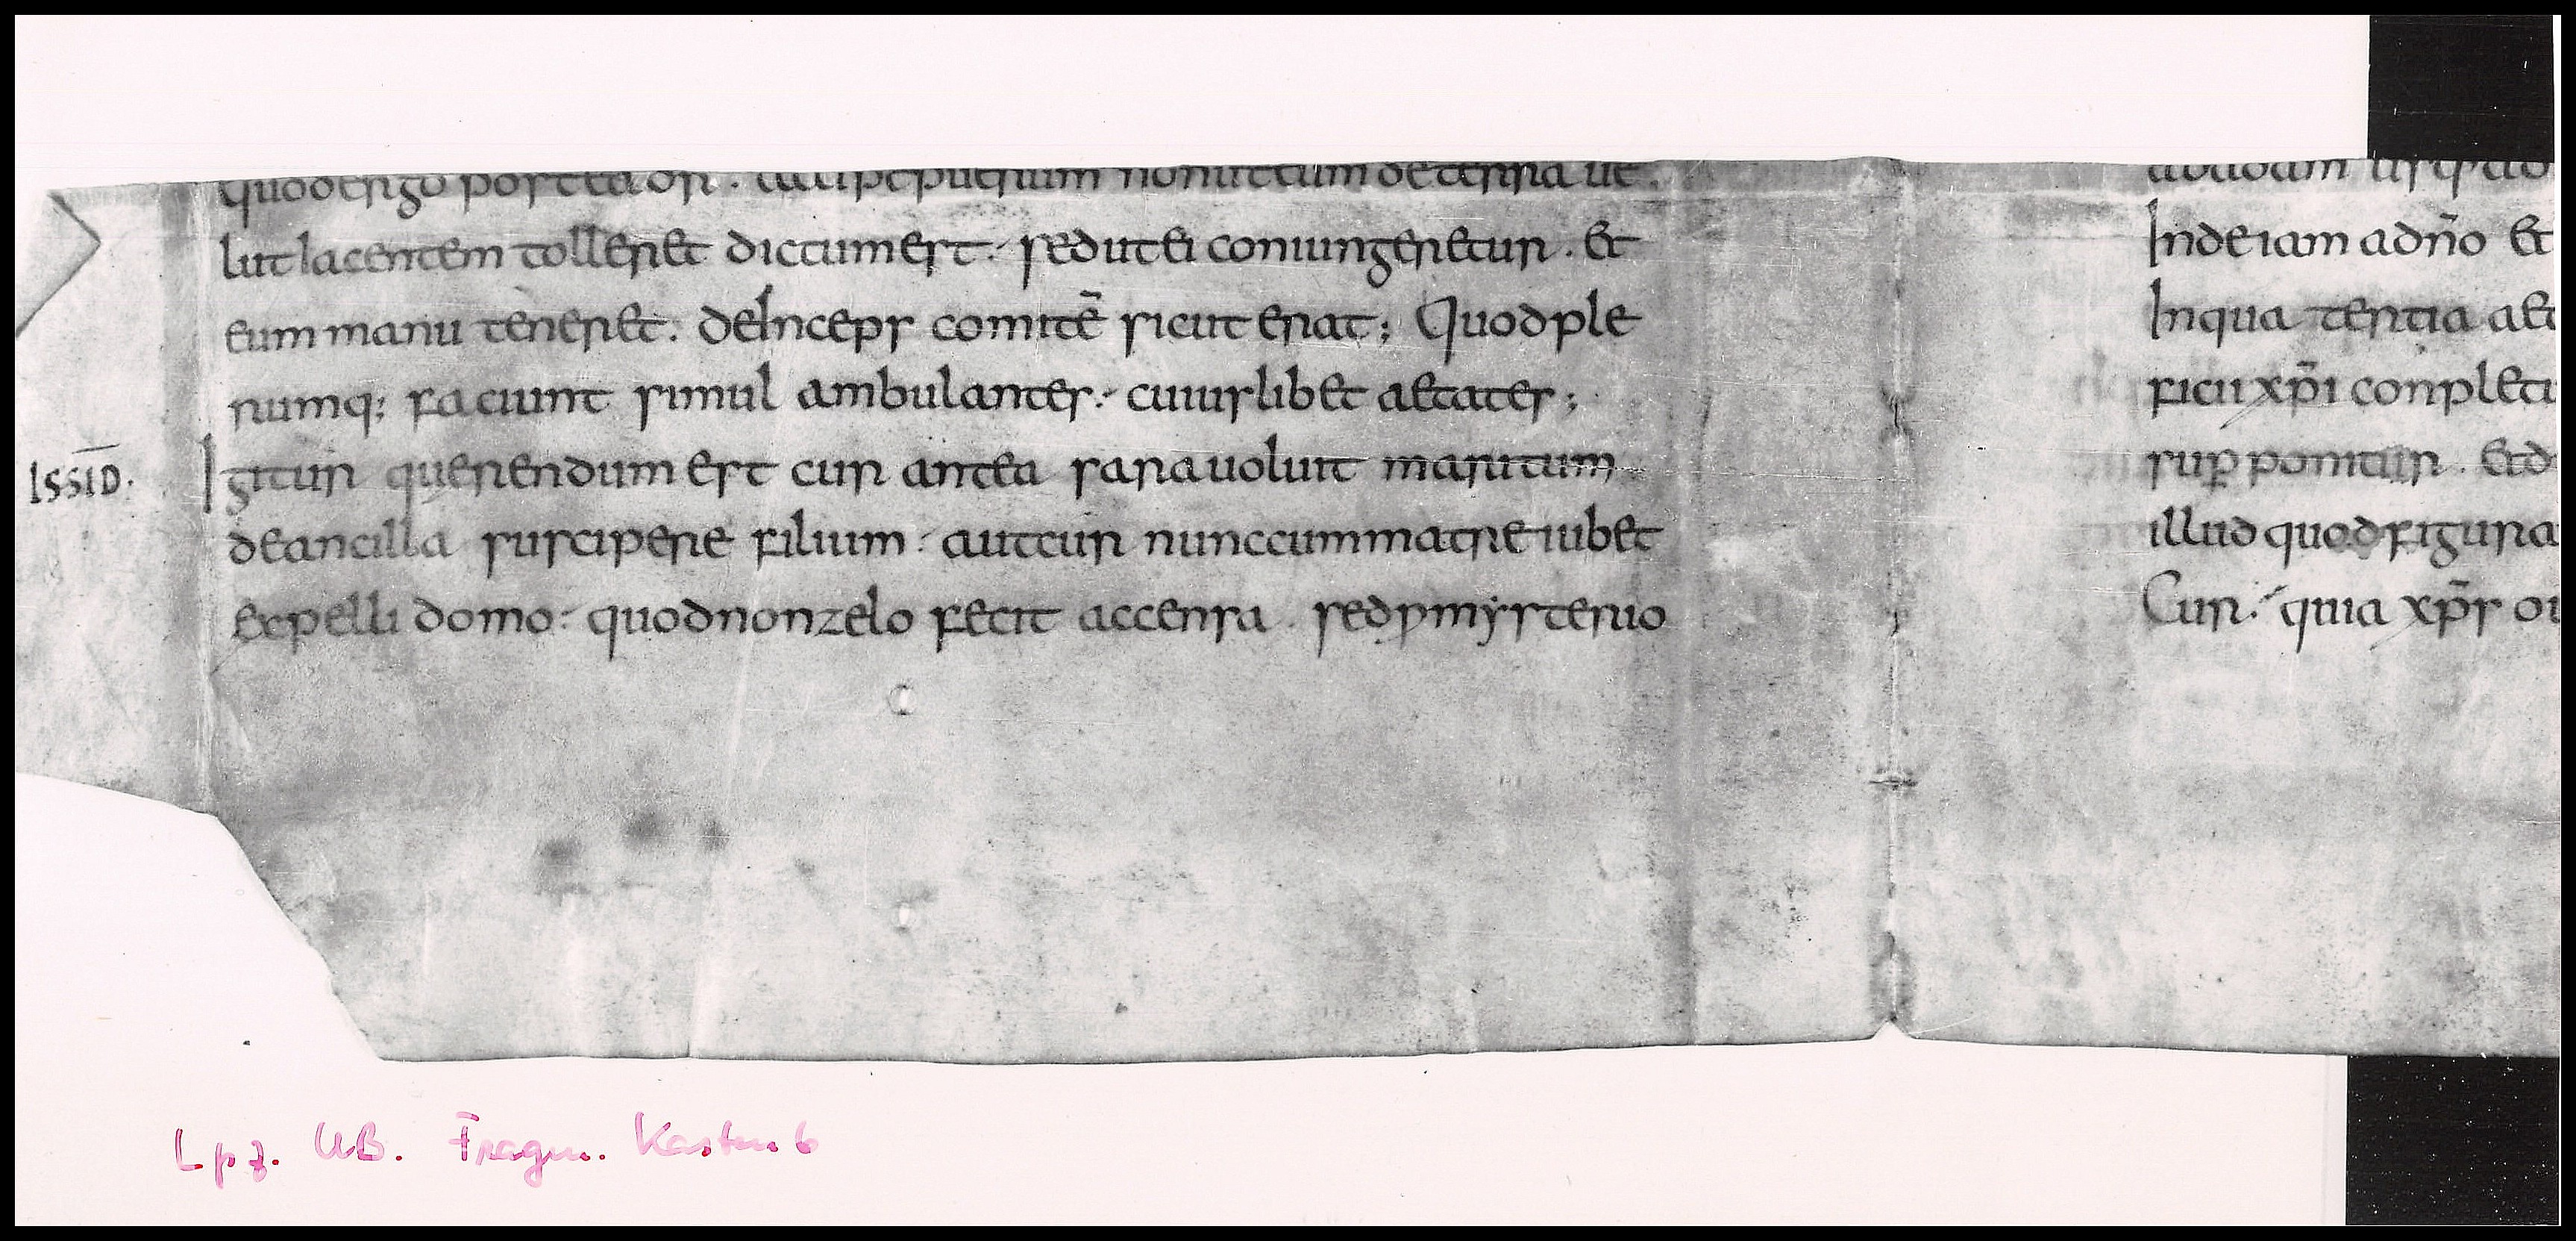 quodergo postea dr̄. accipe puerum non utcum de terra ue
lut lacentem tolleret dictum est. sed ut ei coniungeretur. Et
eum manu teneret. deInceps comitē sicut erat; Quod ple
rumq; faciunt simul ambulantes. cuiuslibet aetates;
ISSID. Igitur querendum est cur antea sara uoluit maritum
de ancilla suscipere filium. aut cur nunc cum matre iubet
expelli domo. quod non zelo fecit accensa. sed p mysterio
Inde iam ad dño Et
In qua tertia aet
ficii xp̄i conpleti
sup ponitur. Et d
illud quod figura
Cur. quia xp̄s
Lpz. UB. Fragm. Kasten 6